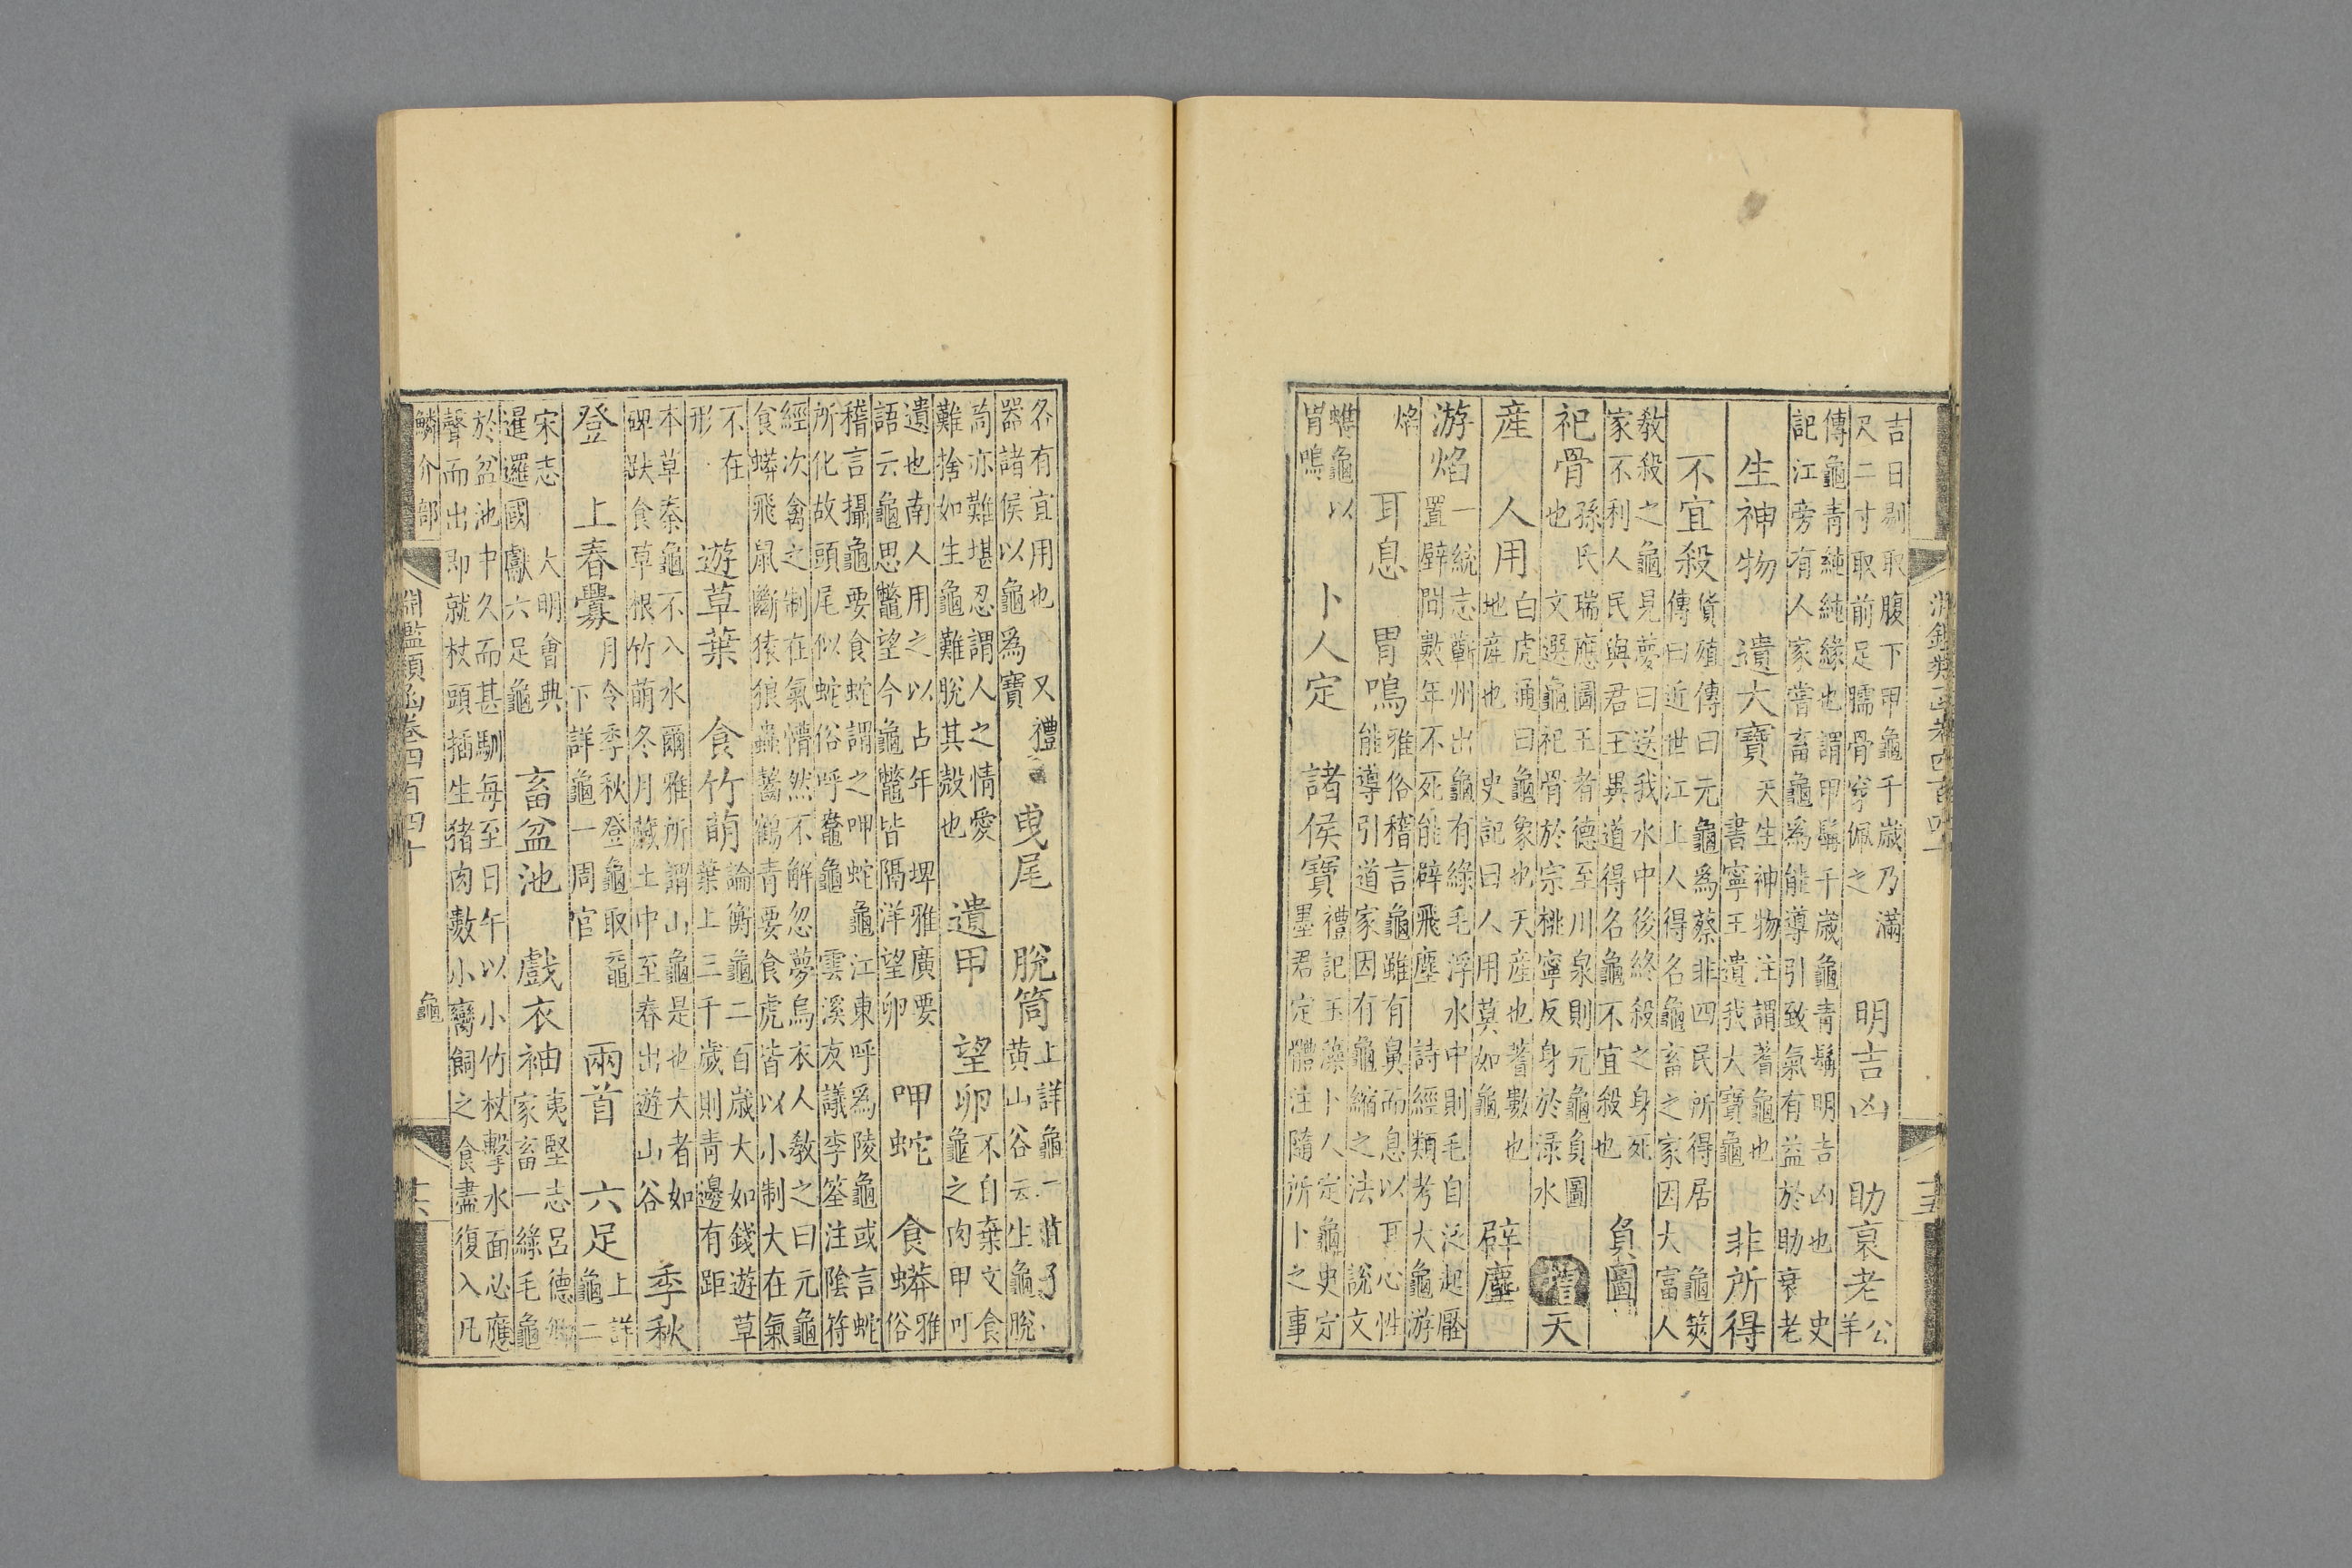 吉日剔取腹下甲龜千歲乃滿
尺二寸取前足臑骨穿佩之 明吉凶 助衰老 公羊
傳龜青純純緣也謂甲髯千歲龜青髯明吉凶也 史
記江旁有人家嘗畜龜爲能導引致氣有益於助衰老
生神物 遺大寶 天生神物注謂蓍龜也 書寧王遺我大寶龜 非所得
不宜殺 貨殖傳曰元龜爲蔡非四民所得居 龜筴
傳曰近世江上人得名龜畜之家因大富人
教殺之龜見夢曰送我水中後終殺之身死
家不利人民與君王異道得名龜不宜殺也 負圖
祀骨 孫氏瑞應圖王者德至川泉則元龜負圖
也 文選龜祀骨於宗祧寧反身於淥水 蓍天
産 人用 白虎通曰龜象也天産也蓍數也
地産也 史記曰人用莫如龜 辟塵
游焰 一統志蘄州出龜有綠毛浮水中則毛自泛起壓
置壁間數年不死能辟飛塵 詩經類考大龜游
焰 耳息 胃鳴 雅俗稽言龜雖有鼻而息以耳心性
能導引道家因有龜縮之法 說文
蠵龜以
胃鳴 卜人定 諸侯寶 禮記玉藻卜人定龜史定
墨君定體注隨所卜之事
各有宜用也 又禮
器諸侯以龜爲寶 曳尾 脫筒 上詳龜一莊子
黃山谷云生龜脫
筒亦難堪忍謂人之情愛
難捨如生龜難脫其殼也 遺甲 望卵 不自棄文食
龜之肉甲可
遺也南人用之以占年 埤雅廣要
語云龜思鼈望今龜鼈皆隔洋望卵 呷蛇 食蟒 雅俗
稽言攝龜要食蛇謂之呷蛇龜江東呼爲陵龜或言蛇
所化故頭尾似蛇俗呼鼈龜 雲溪友議李筌注陰符
經次禽之制在氣懵然不解忽夢烏衣人教之曰元龜
食蟒飛鼠斷猿狼蟲齧鶴青要食虎皆以小制大在氣
不在
形 遊草葉 食竹萌 論衡龜二百歲大如錢遊草
葉上三千歲則青邊有距
本草秦龜不入水爾雅所謂山龜是也大者如
碑趺食草根竹萌冬月藏土中至春出遊山谷 季秋
登 上春釁 月令季秋登龜取黿
下詳龜一周官 兩首 六足 上詳
龜二
宋志 大明會典
暹邏國獻六足龜 畜盆池 戲衣袖 夷堅志呂德卿
家畜一綠毛龜
於盆池中久而甚馴每至日午以小竹杖擊水面必應
聲而出即就杖頭插生猪肉數小臠飼之食盡復入凡
鱗介部 淵鑑類函卷四百四十 龜 十六